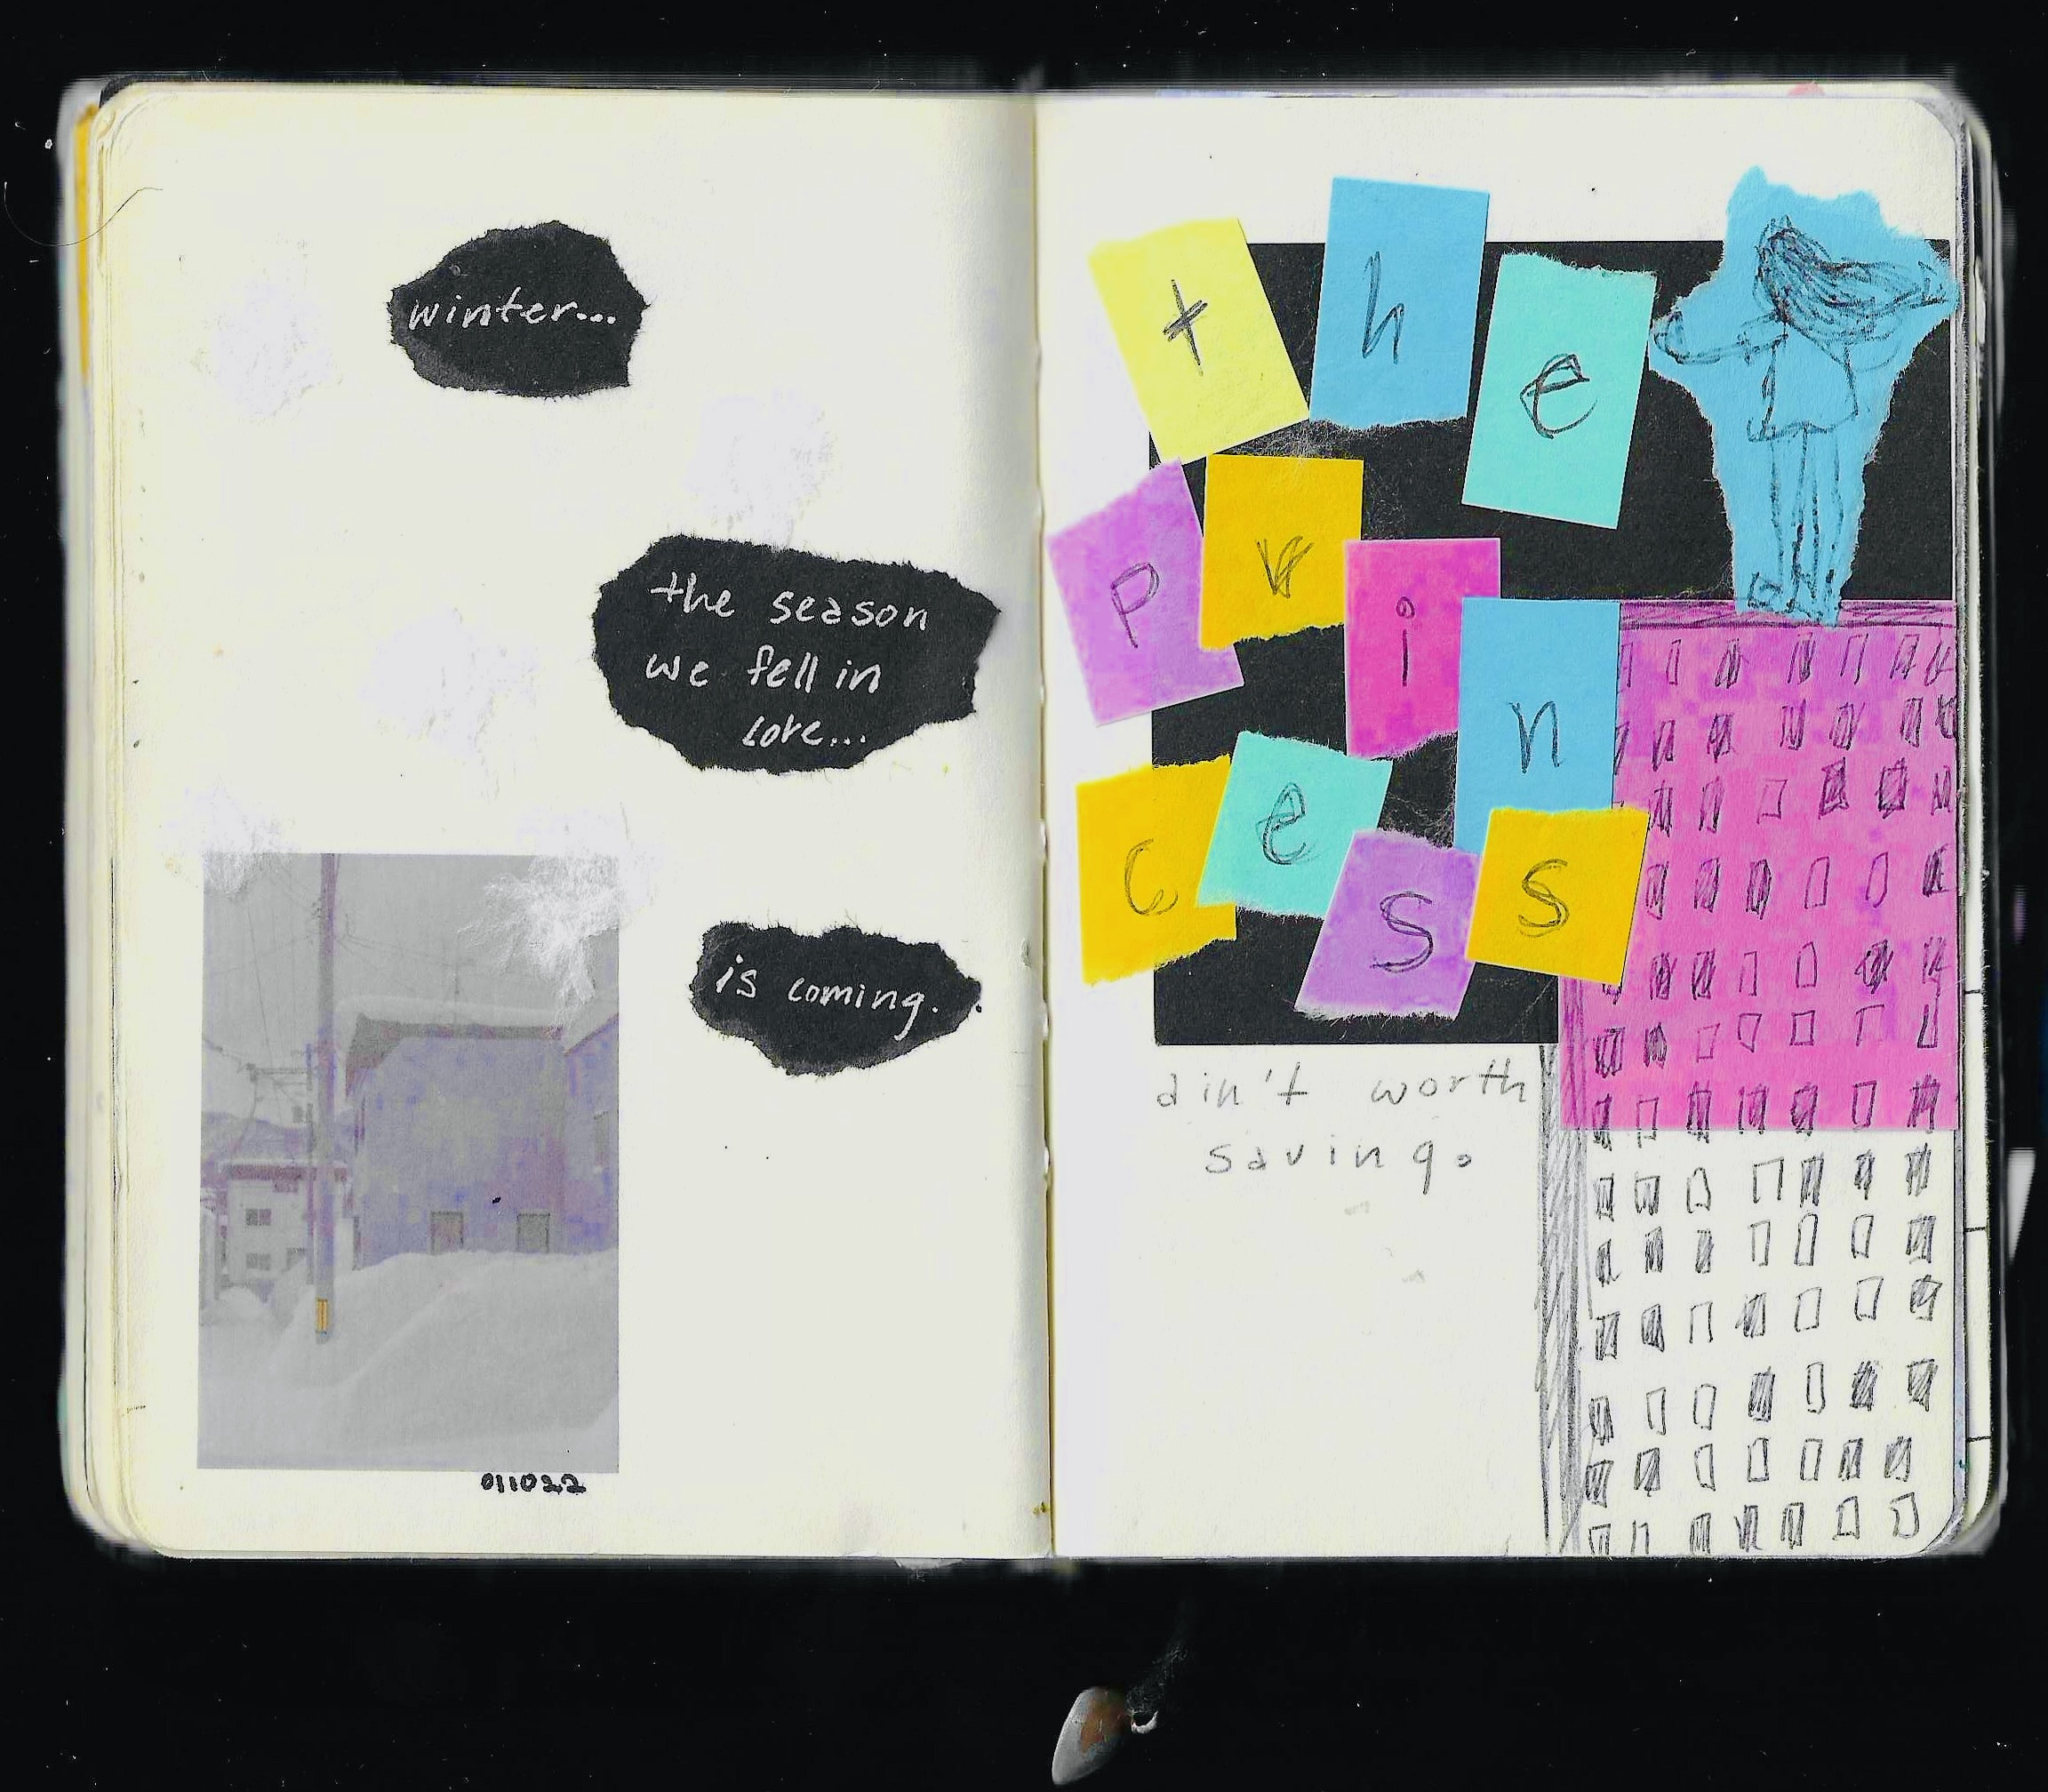 winter...
the season
we fell in
love...
is coming.
011022
the
prin
cess
ain't worth
saving.